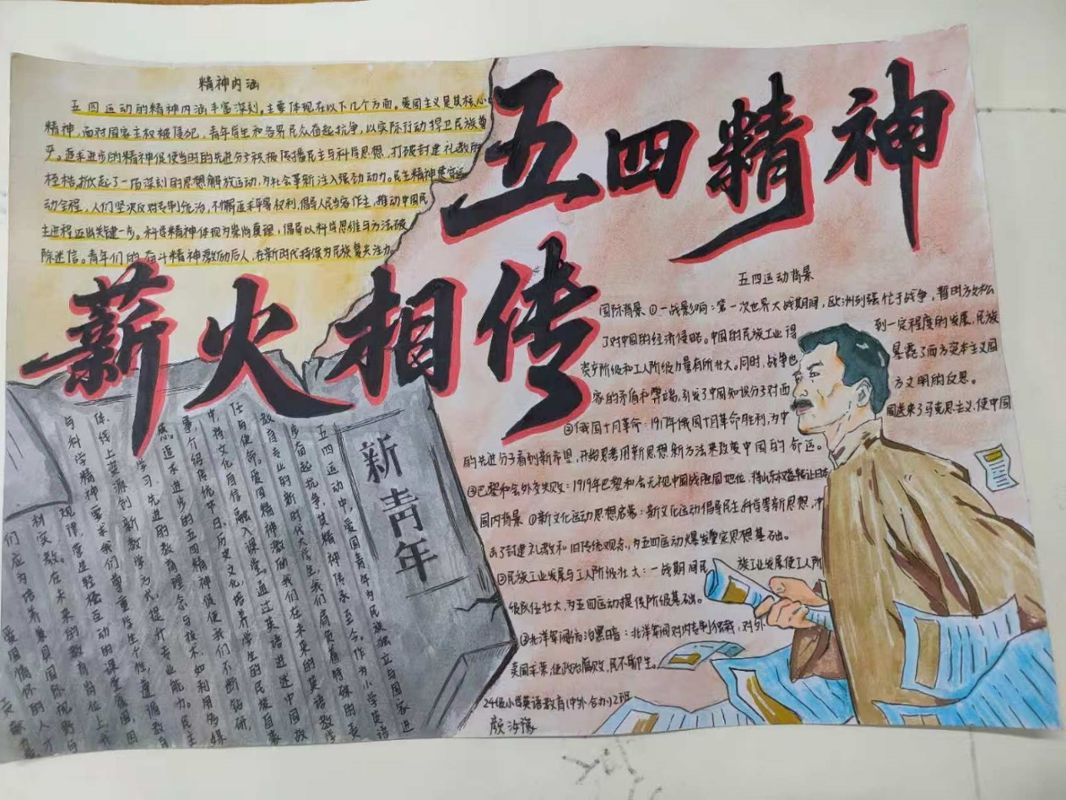 五四精神
薪火相传
精神内涵
五四运动的精神内涵丰富深刻。主要体现在以下几个方面。爱国主义是其核心
精神,面对国家主权被侵犯,青年学生和各界民众奋起抗争,以实际行动捍卫民族尊
严。追求进步的精神促使当时的先进分子积极传播民主与科学思想,打破封建礼教的
桎梏,掀起了一场深刻的思想解放运动,为社会革新注入强劲动力。民主精神贯穿运
动全程,人们坚决反对专制统治,不懈追求平等权利,倡导人民当家作主,推动中国民
主进程迈出关键一步。科学精神体现为崇尚真理,倡导以科学思维与方法破
除迷信。青年们的奋斗精神激励后人,在新时代持续为民族复兴注力
五四运动背景
国际背景 ①一战影响:第一次世界大战期间,欧洲列强忙于战争,暂时放松
了对中国的经济侵略。中国的民族工业得 到一定程度的发展,民族
资产阶级和工人阶级力量有所壮大。同时,战争也 暴露了西方资本主义国
家的矛盾和弊端,引发了中国知识分子对西 方文明的反思。
②俄国十月革命:1917年俄国十月革命胜利,为中 国送来了马克思主义,使中国
的先进分子看到新希望,开始思考用新思想新方法来改变中国的命运。
③巴黎和会外交失败:1919年巴黎和会无视中国战胜国地位,将山东权益转让日本
国内背景 ①新文化运动思想启蒙:新文化运动倡导民主科学等新思想,冲
击了封建礼教和旧传统观念,为五四运动爆发奠定思想基础。
②民族工业发展与工人阶级壮大:一战期间民 族工业发展使工人阶
级队伍壮大,为五四运动提供阶级基础。
③北洋军阀统治黑暗:北洋军阀对内专制独裁,对外
卖国求荣,政治腐败,民不聊生。
24级小学英语教育(中外合办)2班
新青年
五四运动中,爱国青年为民族独立与国家进
步奋起抗争,其精神传承至今。作为小学英语
教育专业的新时代大学生,我们肩负着特殊的
任与使命。爱国精神激励我们在未来的英语教学
中将文化自信融入课堂,通过英语讲述中国故
事,介绍传统节日、历史文化,培养学生的民族自豪
感。追求进步的五四精神促使我们不断钻研
学习先进的教育理念与技术,如利用多媒
体、线上资源创新教学方式,提升专业能力。民主
与科学精神要求我们尊重学生个性,遵循教育
规律,营造轻松互动的课堂氛围,因
材实教。在未来的教育岗位上,我
们应为培养兼具国际视野与
爱国情怀的人才
贡献力量